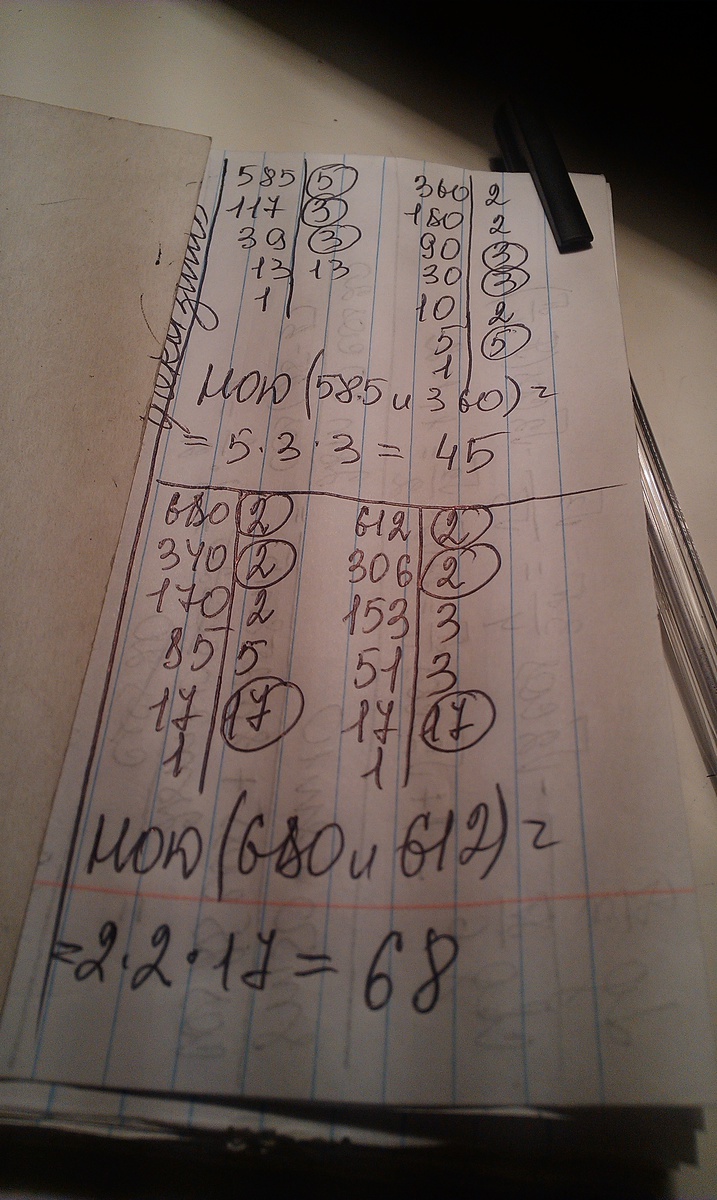 585 5
117 3
39 3
13 13
1
360 2
180 2
90 3
30 3
10 2
5 5
1
НОД (585 и 360) =
= 5·3·3 = 45
680 2
340 2
170 2
85 5
17 17
1
612 2
306 2
153 3
51 3
17 17
1
НОД (680 и 612) =
= 2·2·17 = 68